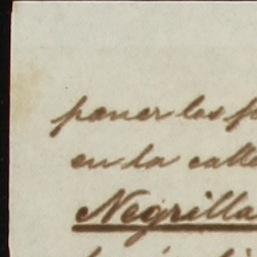 poner los
en la calle
Negrilla